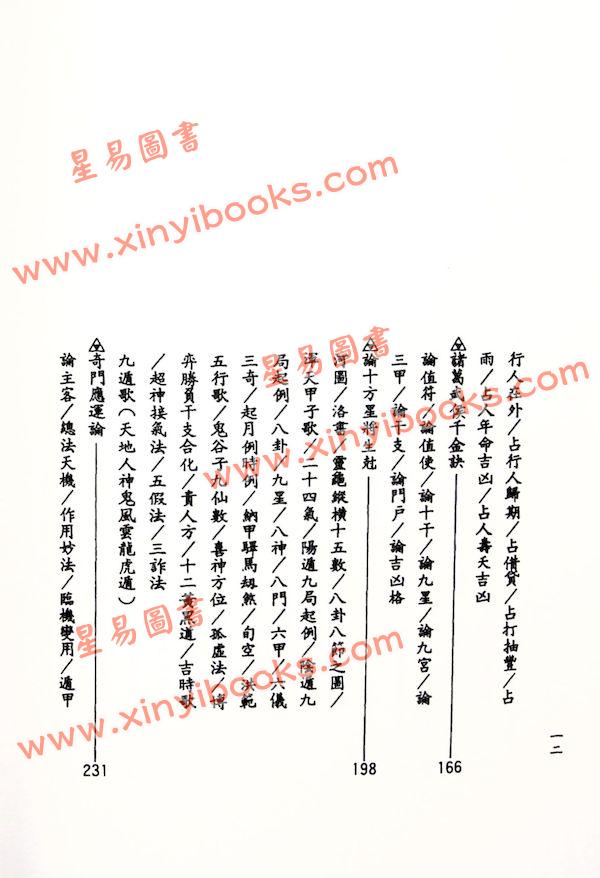 行人在外／占行人歸期／占借貸／占打抽豐／占
雨／占人年命吉凶／占人壽夭吉凶
諸葛武侯千金訣 166
論值符／論值使／論十干／論九星／論九宮／論
三甲／論干支／論門戶／論吉凶格
論十方星將生尅 198
河圖／洛書／靈龜縱橫十五數／八卦八節之圖／
渾天甲子歌／二十四氣／陽遁九局起例／陰遁九
局起例／八卦／九星／八神／八門／六甲／六儀
三奇／起月例時例／納甲驛馬刼煞／旬空／洪範
五行歌／鬼谷子九仙數／喜神方位／孤虛法／博
弈勝負干支合化／貴人方／十二黃黑道／吉時歌
／超神接氣法／五假法／三詐法
九遁歌（天地人神鬼風雲龍虎遁）
奇門應運論 231
論主客／總法天機／作用妙法／臨機變用／遁甲
一二
星易圖書
www.xinyibooks.com
星易圖書
www.xinyibooks.com
星易圖書
www.xinyibooks.com